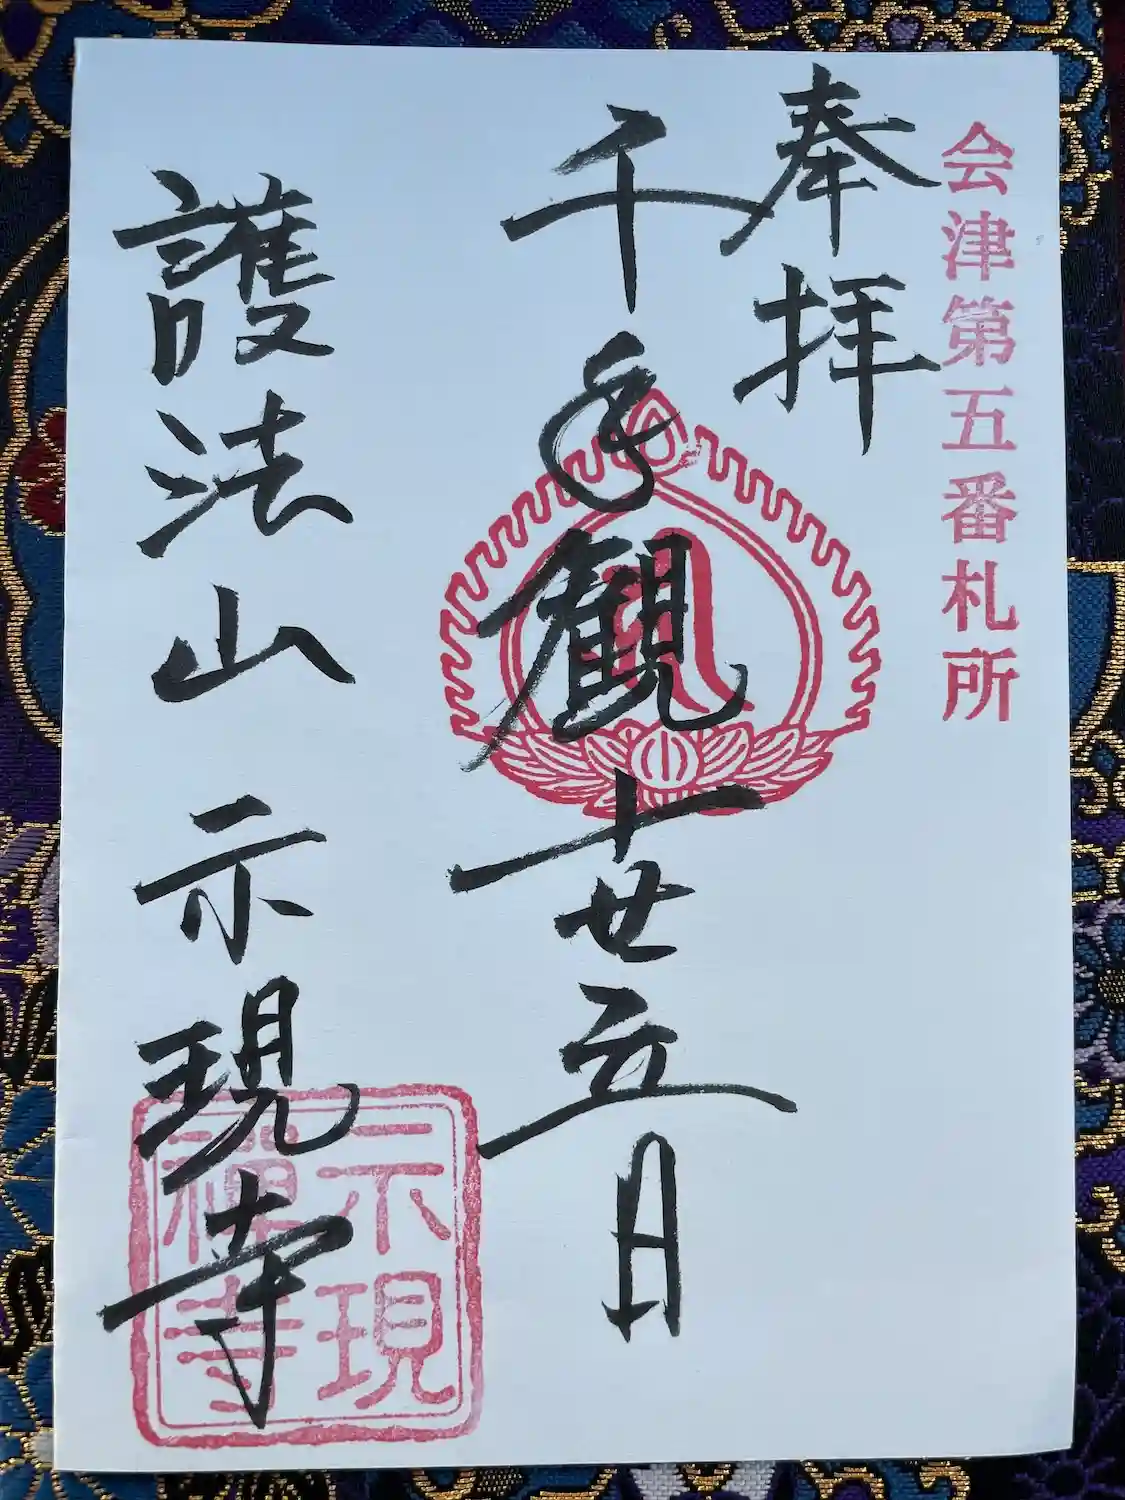 会津第五番札所
奉拝
千手観世音
護法山 示現寺
示現
禪寺